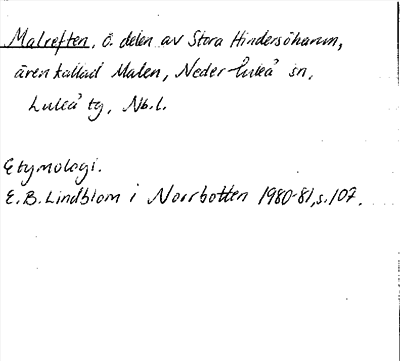 Malreften, ö. delen av Stora Hindersöharun,
även kallad Malen, Neder-Luleå sn,
Luleå tg, Nb.l.
Etymologi.
E.B. Lindblom i Norrbotten 1980-81, s. 107.